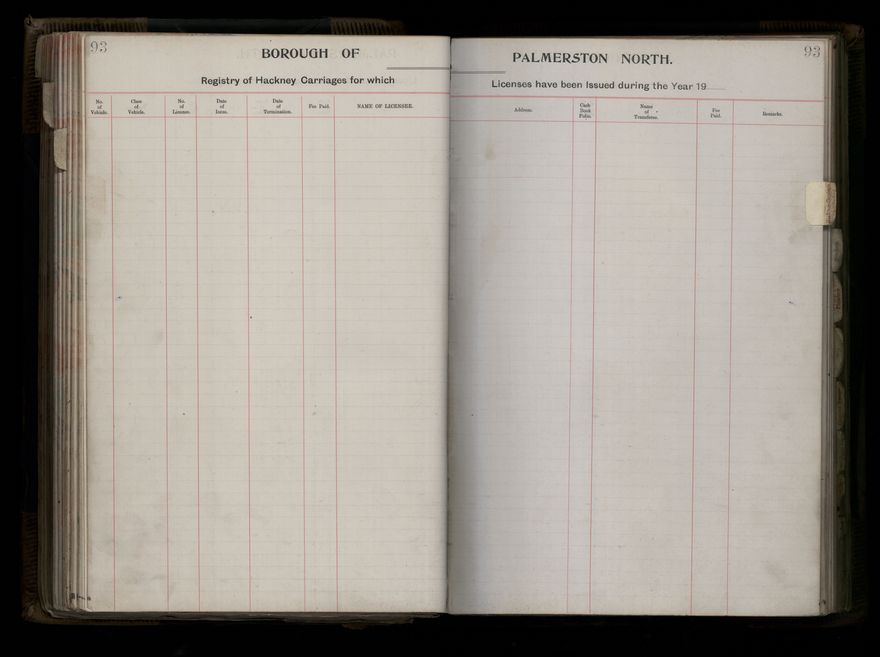 93
BOROUGH OF
Registry of Hackney Carriages for which
No. of Vehicle.
Class of Vehicle.
No. of License.
Date of Issue.
Date of Termination.
Fee Paid.
NAME OF LICENSEE.
93
PALMERSTON NORTH.
Licenses have been Issued during the Year 19
Address.
Cash Book Folio.
Name of Transferee.
Fee Paid.
Remarks.